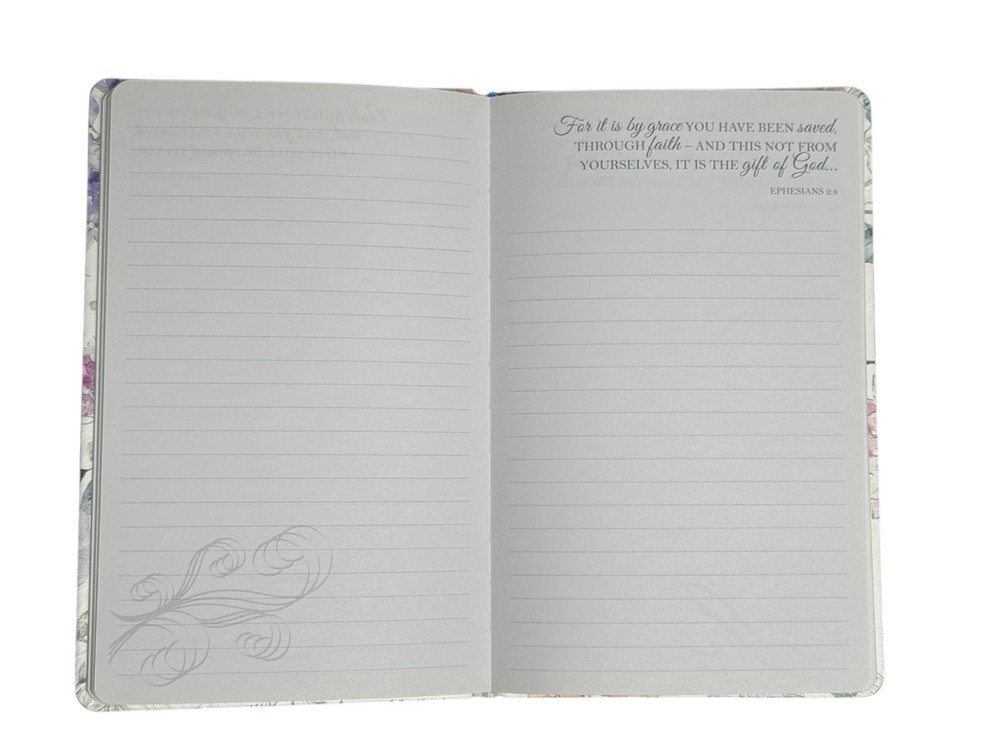 For it is by grace YOU HAVE BEEN saved,
THROUGH faith – AND THIS NOT FROM
YOURSELVES, IT IS THE gift of God...
EPHESIANS 2:8